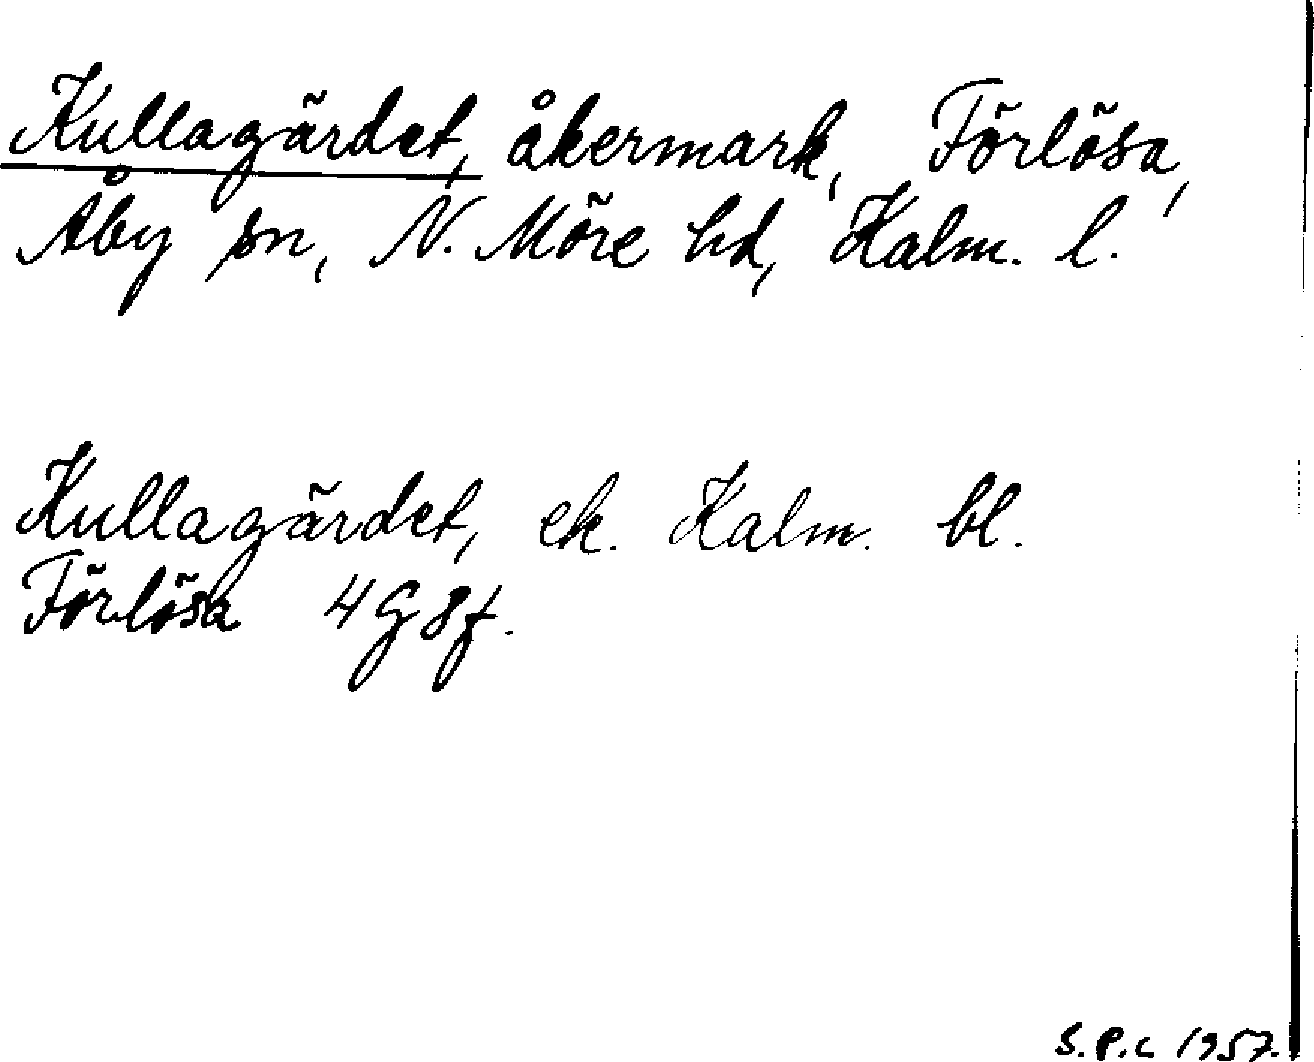 Kullagärdet, åkermark, Förlösa,
Åby sn, N. Möre hd, Kalm. l.
Kullagärdet, ek. Kalm. bl.
Förlösa 4 G 8 f.
S.P.C 1957.